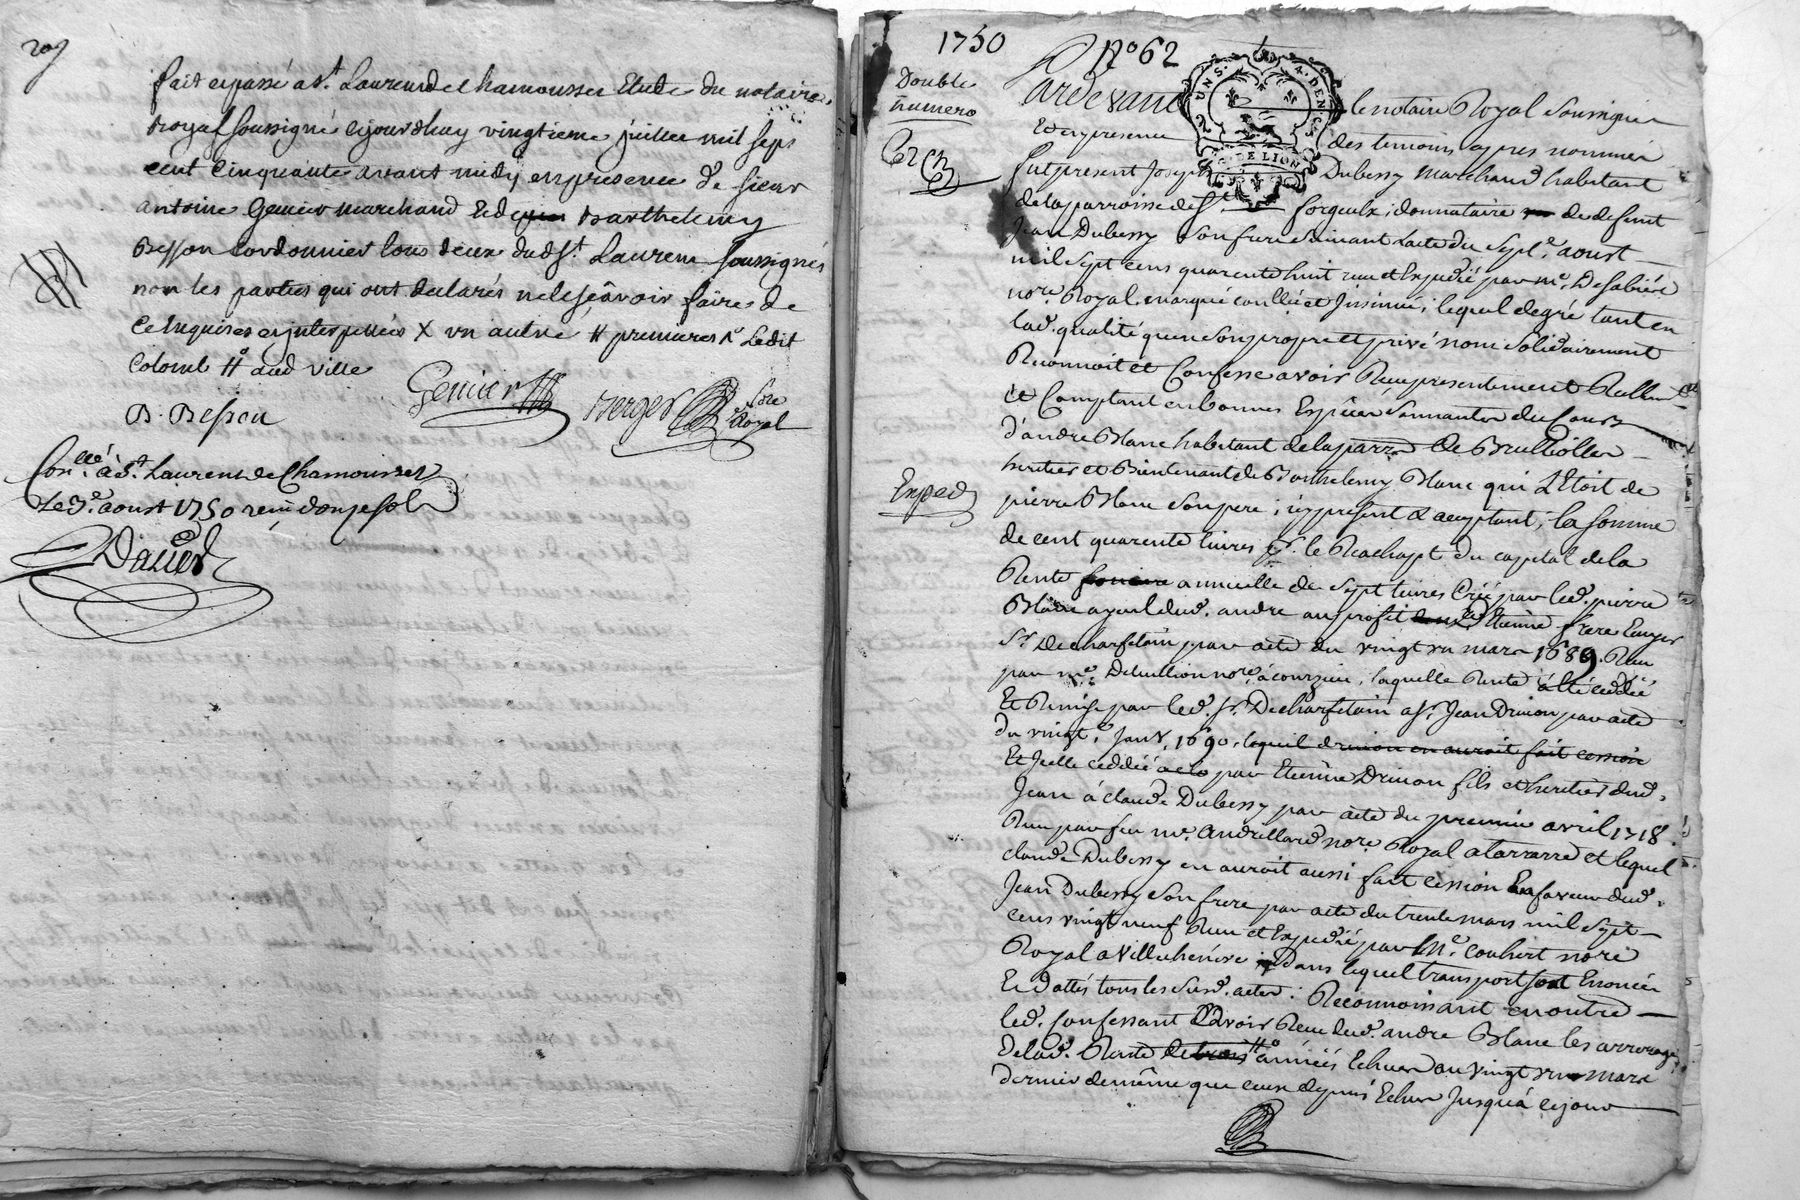 fait et passé a St. Laurend de Chamousset Etude du notaire
Royal soussigné cejourdhuy vingtieme juillet mil sept
cent cinquante avant midy en presence de sieur
antoine Genier marchand Et de Barthelemy
Besson Cordonnier tous deux dudt St. Laurent soussignés
non les parties qui ont declarés ne le sçavoir faire de
ce Enquises et interpellées X un autre # premieres Ledit
Colomb # aud ville
B. Besson
Genier
Berger
Nore Royal
Conllé à St. Laurens de Chamousset
Le aoust 1750 reçu douze sols
1750
No 62
Double
numero
Pardevant
GEN. DE LION
le notaire Royal soussigné
Et en presence des temoins apres nommés
fut present Joseph Dubessy marchand habitant
de la parroisse de St forgeulx, donnataire de defunt
Jean Dubessy son frere suivant l'acte du Sept.e aoust
mil Sept cens quarente huit reçu et Expedié par me.
nore. Royal, marqué conllé et Insinué; lequel de gré tant en
lad. qualité qu'en son propre et privé nom solidairement
Reconnoit et Confesse avoir Reçu presentement Reellement
et Comptant en bonnes Especes sonnantes du Cours
d'andre Blanc habitant de la parr.e de Brullioles
heritier et Bientenant de Barthelemy Blanc qui L'Etoit de
Exped
pierre Blanc son pere; icy present & acceptant; la somme
de cent quarente livres pr. le Rachapt du capital de la
Rente fonciere annuelle de Sept livres Créé par led. pierre
Blanc ayeul dud. andre au profit Etienne frere
Sr. De charfetain par acte du vingt un mars 1689. Reçu
par me. nore. à courzieu, laquelle Rente a été ceddée
Et Remise par led. Sr. De charfetain a Sr. Jean Drivon par acte
du vingt.e Janv. 1690. lequel drivon en auroit fait cession
Et Icelle ceddée par Etienne Drivon fils et heritier dud.
Jean à claude Dubessy par acte du premier avril 1718.
Reçu par feu me. Andrillard nore. Royal a tarrare et lequel
claude Dubessy en auroit aussi fait cession En faveur dud.
Jean Dubessy son frere par acte du trente mars mil Sept
cens vingt neuf Reçu et Expedié par Me. Couhert nore
Royal a Villechenéve dans lequel transport sont Enoncés
Et dattés tous les Susd. actes: Reconnoissant en outre
led. Confessant avoir Reçu dud. andre Blanc les arrerages
de lad. Rente de trois années Echues au vingt un mars
dernier de même que ceux depuis Echus Jusqu'à ce jour